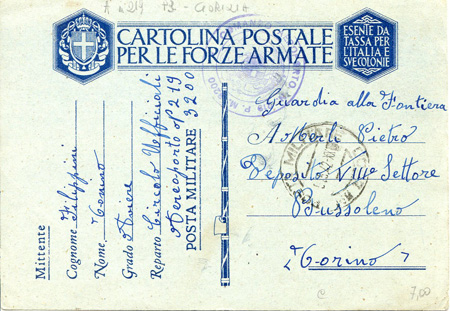 A n 219 P3 - GORIZIA
CARTOLINA POSTALE
PER LE FORZE ARMATE
ESENTE DA
TASSA PER
L'ITALIA E
SUE COLONIE
P. M. 3200
POSTA MILITARE
Mittente
Cognome Filippini
Nome Tonino
Grado Aviere
Reparto Circolo Ufficiali
Aereoporto n° 219
POSTA MILITARE 3200
Guardia alla Fontiera
Pietro
Deposito VIII° Settore
Bussoleno
(Torino)
C
7,00